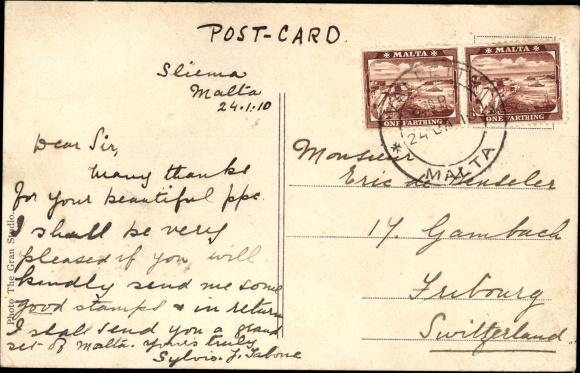 POST-CARD.
Sliema
Malta
24.1.10
Dear Sir,
Many thanks
for your beautiful ppc.
I shall be very
pleased if you will
kindly send me some
good stamps & in return
I shall send you a grand
set of Malta. Yours truly
Sylvio. J. Tabone
Photo The Gran Studio.
MALTA
ONE FARTHING
MALTA
ONE FARTHING
VALLETTA
24 JA 10
MALTA
Monsieur
Eric de
17. Gambach
Fribourg
Switzerland.